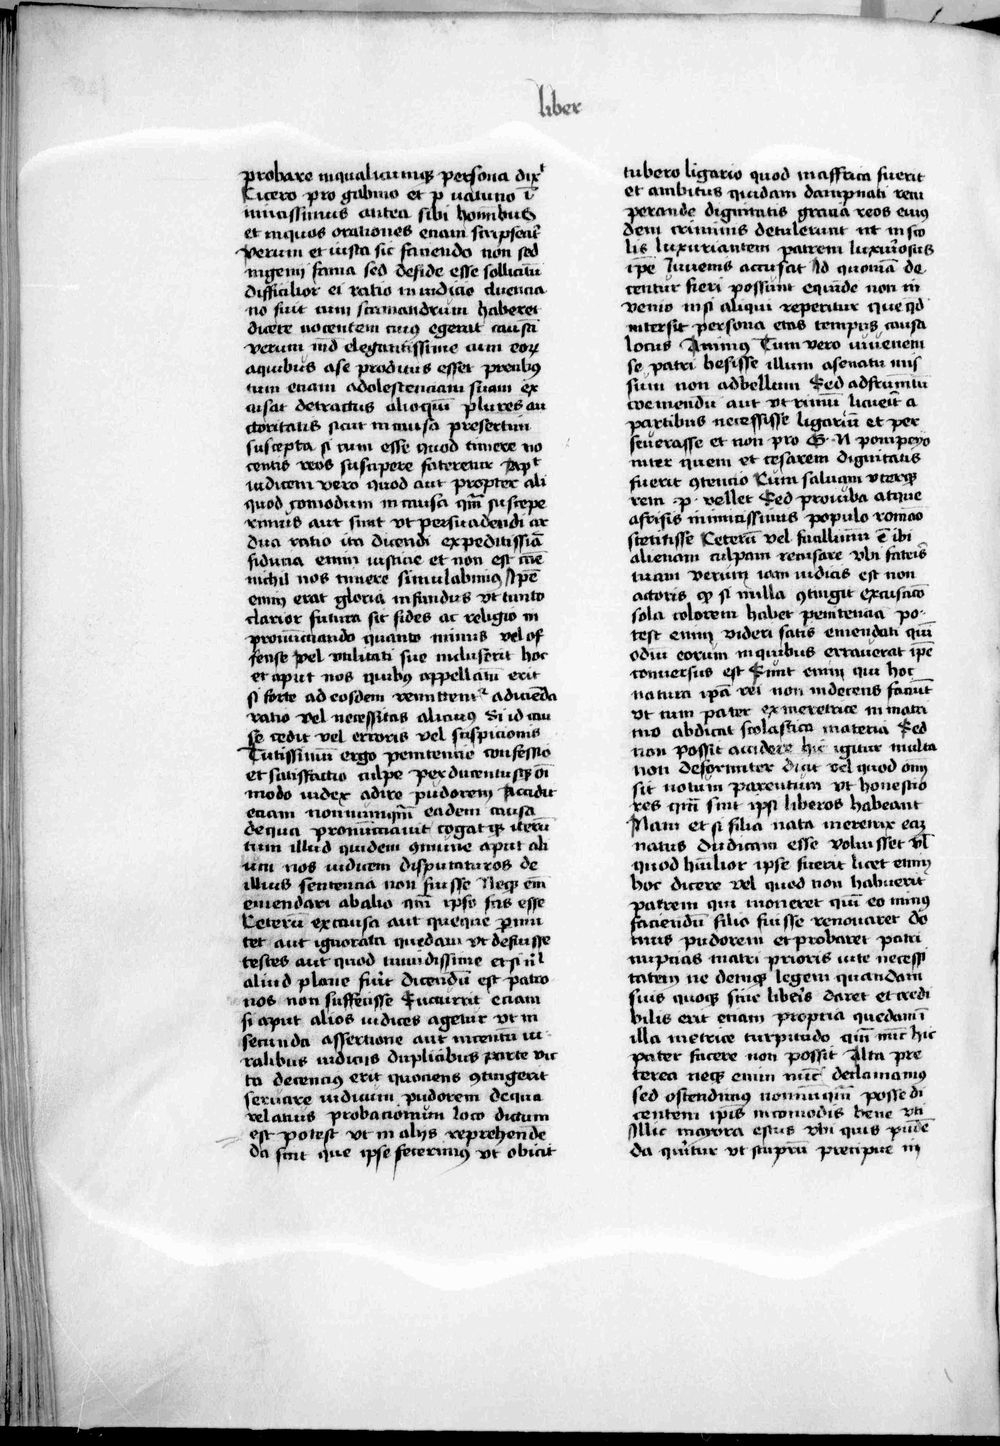 liber
probare inqualicumq; persona dixt
Cicero pro gabinio et p uatinio ī
inimicissimus antea sibi hominibus
et inquos orationes etiam scripserat
Verum et iusta sic faciendo non sed
ingenii fama sed defide esse sollicitū
difficilior ei ratio iniudicio cluencia
no fuit cum scamandrum haberet
dicere nocentem cuius egerat causā
verum illud elegantissime cum eorum
aquibus ase proditus esset precibus
tum etiam adolescenciam suam ex
cusat detracturus alioquin plures au
ctoritatis sicut incausa presertim
suscepta si eum esse quod timere no
centis reos suscipere fateretur Apt
iudicem vero quod aut propter ali
quod comodum incausa quam suscepe
rimus aut sint vt persuadendi ar
dua ratio ita dicendi expeditissiā
fiducia enim iusticie et non est cāe
nichil nos timere simulabimus Ipē
enim erat gloria infundus vt tunto
clarior futura sit fides ac religio in
pronūciando quanto minus vel of
fense vel vtilitati sue indulserit hoc
et aput nos quibus appellatum erit
si forte ad eosdem remittemur adicienda
ratio vel necessitas alicuius Si id cau
se cedit vel erroris vel suspicionis
Tutissimū ergo penitencie confessio
et satisfactio culpe perducentusq; oī
modo iudex adire pudorem Accidit
etiam nonnunquam eadem causa
dequa pronūciauit cogat qs iterū
tum illud quidem cōmune aput ali
um nos iudicem disputaturos de
illius sentencia non fuisse Neq; em
emendari abalio quam ipso fas esse
Ceterū excausa aut queque permit
tet aut ignorata quedam vt defuisse
testes aut quod timidissime et si nl
aliud plane fuit dicendū est patro
nos non suffecisse Succurrit etiam
si aput alios iudices agetur vt in
secunda assertione aut incentū ui
ralibus iudiciis duplicibus parte vic
ta decencius erit quociens contingerit
seruare iudicium pudorem dequa
relatius probacionum loco dictum
est potest vt in aliis reprehende
da sint que ipse fecerimus vt obicit
tubero ligario quod inaffrica fuerit
et ambitus quidam dampnati recu
perande dignitatis gratia reos eius
dem criminis detulerunt ut in sco
lis luxuriantem patrem luxuriosus
ipē Iuuenis accusat Id quoniā de
center fieri possunt equide non in
venio insi aliqui reperitur que qd
intersit persona etas tempus causa
locus Animus Tum vero iuuenem
se patri hesisse illum asenatu mis
sum non adbellum Sed adfrumentū
coemendū aut vt rimū licuerit a
partibus necessisse ligariū et per
seuerasse et non pro G N pompeyo
inter quem et cesarem dignitatis
fuerit contencio Cum saluam vterq;
rem p vellet Sed proiuba atque
afrisis inimicissimus populo romano
stetitisse Ceterū vel facillimū ē ibi
alienam culpam recusare vbi fateris
tuam verum iam iudicis est non
actoris q si nulla contingit excusacio
sola colorem habet penitencia po
test enim videri satis emendati qui
odiū eorum inquibus errauerat ipē
conuersus est Sunt enim qui hoc
natura ipā rei non indecens faciūt
vt cum pater exmeretrice in matri
mo abdicat scolastica materia Sed
non possit accidere hic igitur multa
non deformiter dicit vel quod oīm
sit notum parentum vt honestio
res quam sint ipsi liberos habeant
Nam et si filia nata meretrix eam
natus dudicam esse voluisset vl
quod hūilior ipse fuerit licet enim
hoc dicere vel quod non habuerit
patrem qui moneret quī eo minus
faciendū filio fuisse renouaret do
mus pudorem et probaret patri
nuptias matri prioris uite necess
tatem ne deniq; legem quandam
suis quoq; sine liberis daret et credi
bilis erit etiam propria quedam ī
illa metrice turpitudo quā nūc hic
pater facere non possit Alta pre
terea neq; enim nūc declamamus
sed ostendimus nonnūquā posse di
centem ipsis incomodis bene vti
Illic maiora estus vbi quis pude
da queritur vt stuprū precipue in